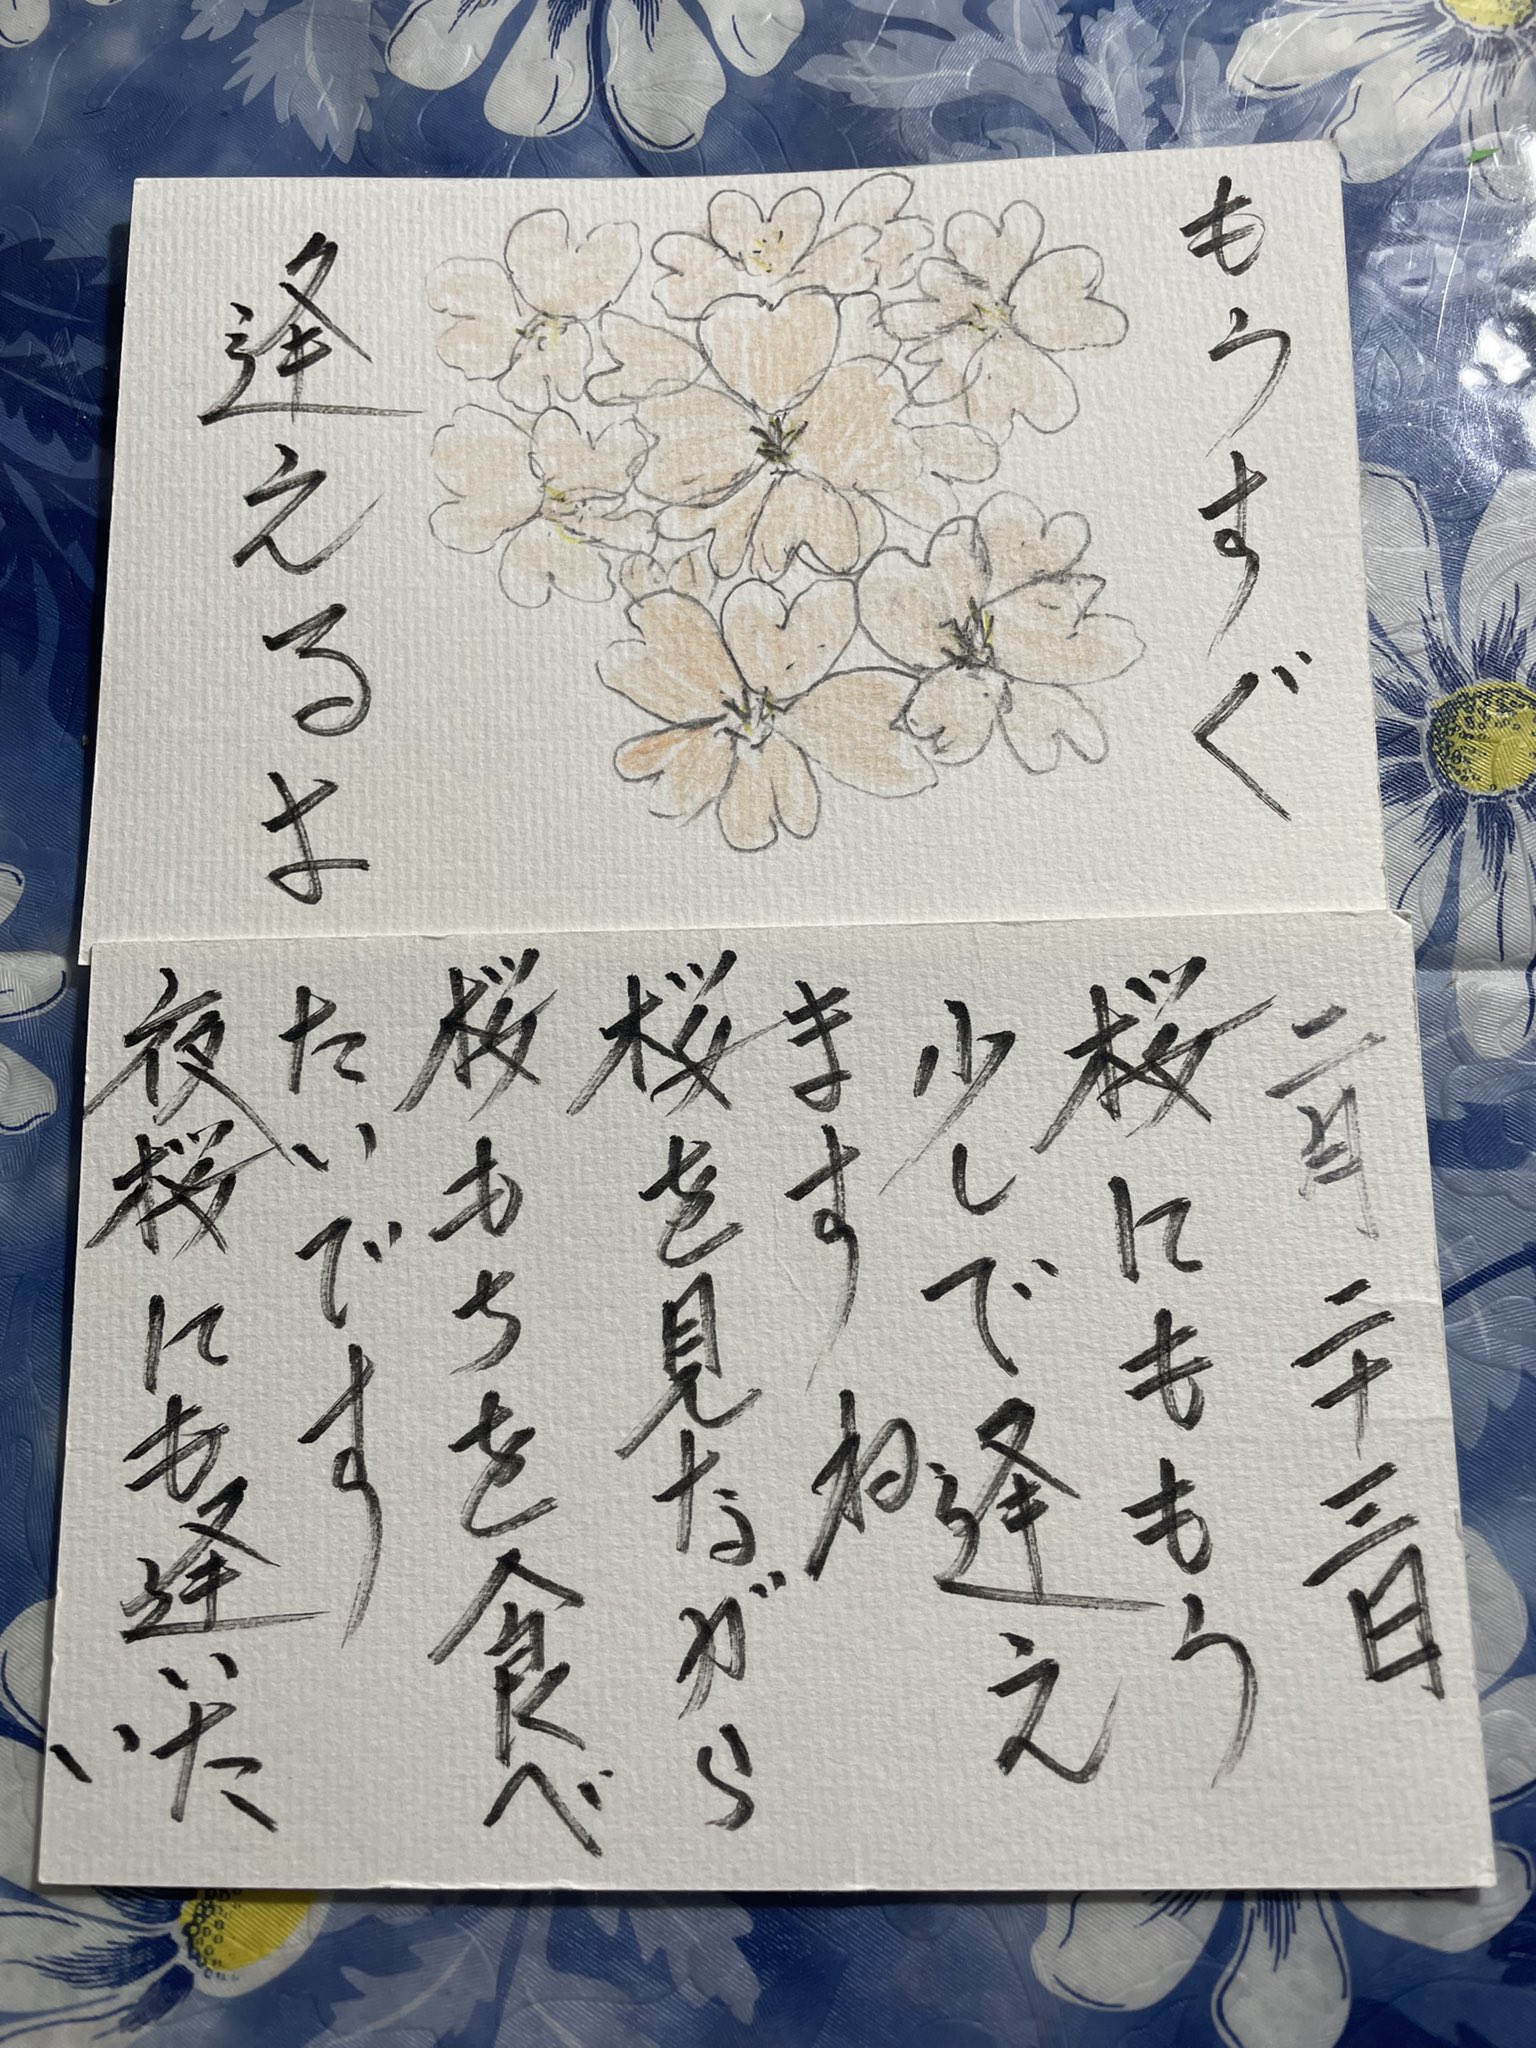 もうすぐ
逢えるよ
二月二十三日
桜にももう
少しで逢え
ますね
桜を見ながら
桜もちを食べ
たいです
夜桜にも逢いた
い